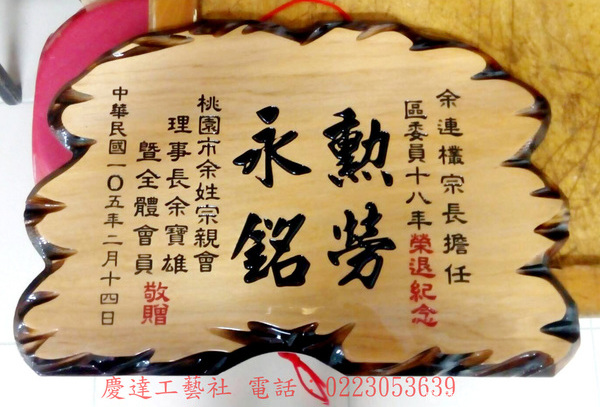 余連欉宗長擔任
區委員十八年榮退紀念
勲勞
永銘
桃園市余姓宗親會
理事長余寶雄
暨全體會員敬贈
中華民國一〇五年二月十四日
慶達工藝社 電話：0223053639